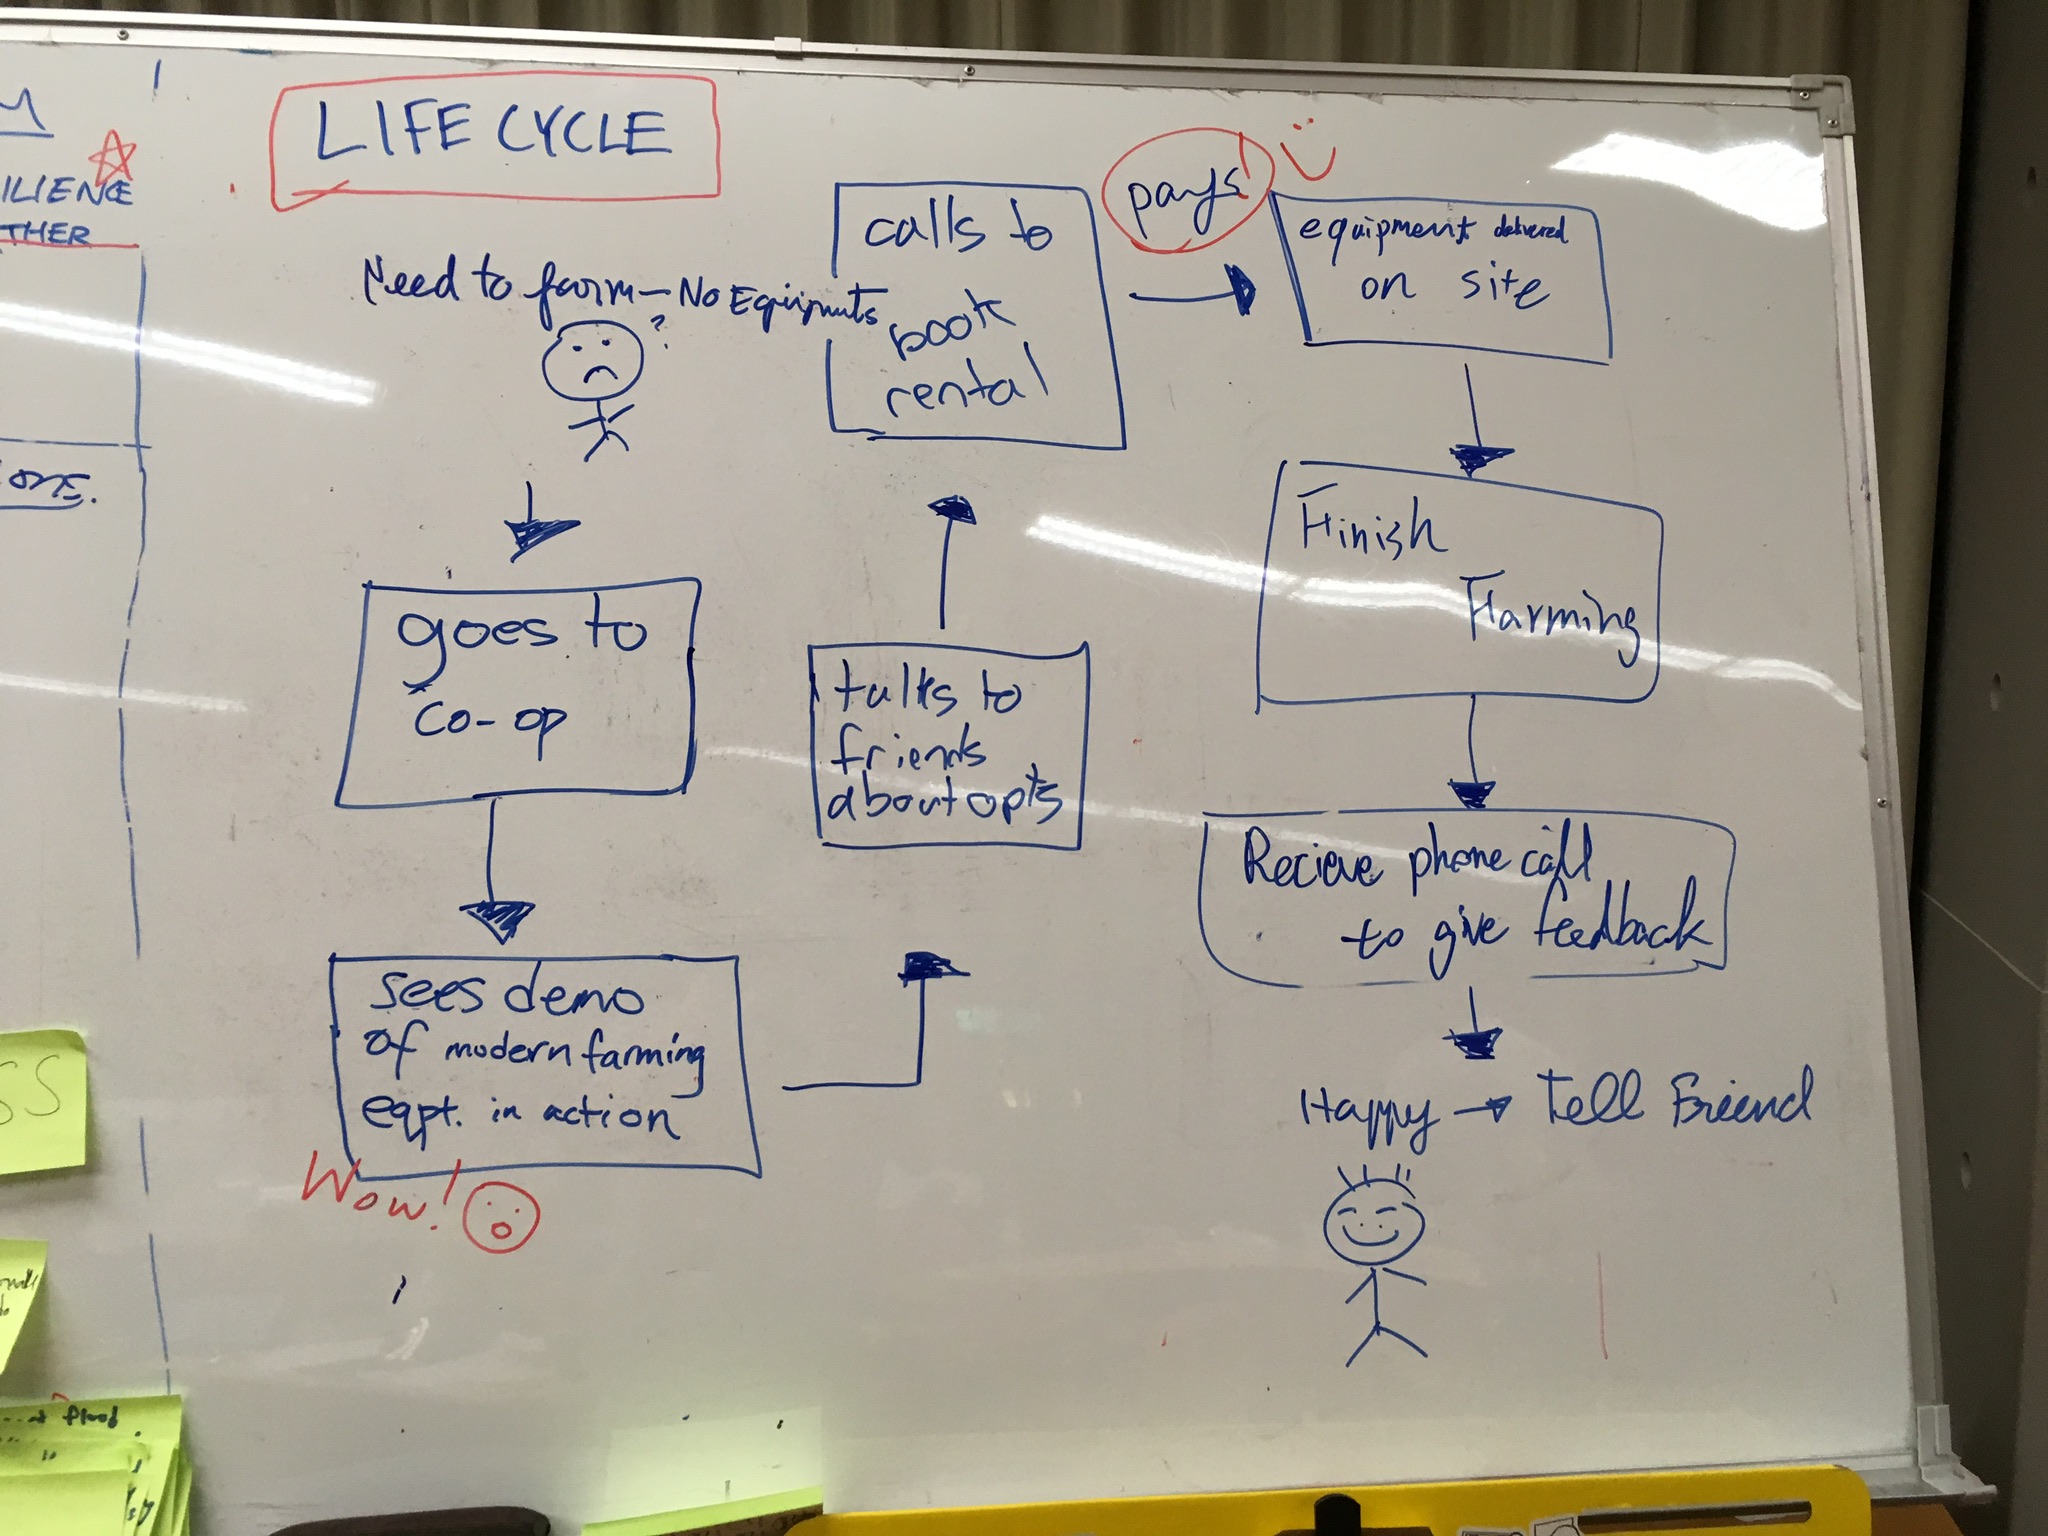 LIFE CYCLE
ILIENCE
THER
Need to farm - No Equipmts
?
goes to
co-op
sees demo
of modern farming
eqpt. in action
Wow!
talks to
friends
about opts
calls to
book
rental
pays!
equipment delivered
on site
Finish
Farming
Recieve phone call
to give feedback
Happy → Tell Friend
SS
flood